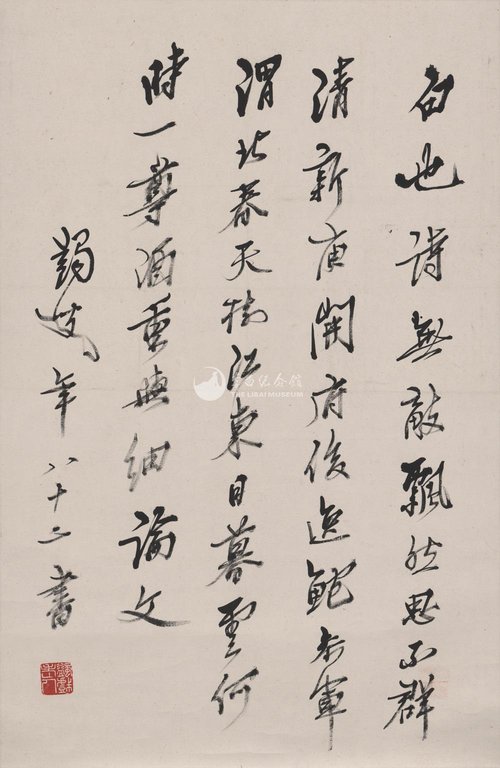 白也詩無敵飄然思不群
清新庾開府俊逸鮑參軍
渭北春天樹江東日暮雲何
時一尊酒重與細論文
蠲叟年八十二書
李白纪念馆
THE LIBAI MUSEUM